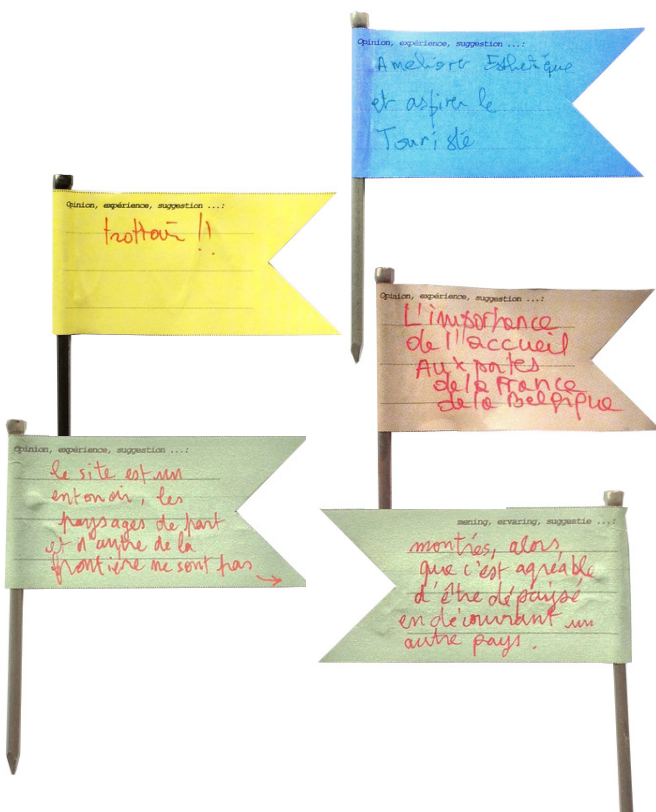 Opinion, expérience, suggestion ...:
Ameliorer Esthetique
et aspirer le
Touriste
Opinion, expérience, suggestion ...:
trottoir !!
Opinion, expérience, suggestion ...:
L'importance
de l'accueil
Aux portes
de la France
de la Belgique
Opinion, expérience, suggestion ...:
le site est un
entonoir, les
paysages de part
et d'autre de la
frontière ne sont pas →
mening, ervaring, suggestie ...:
montrés, alors
que c'est agréable
d'être dépaysé
en découvrant un
autre pays.